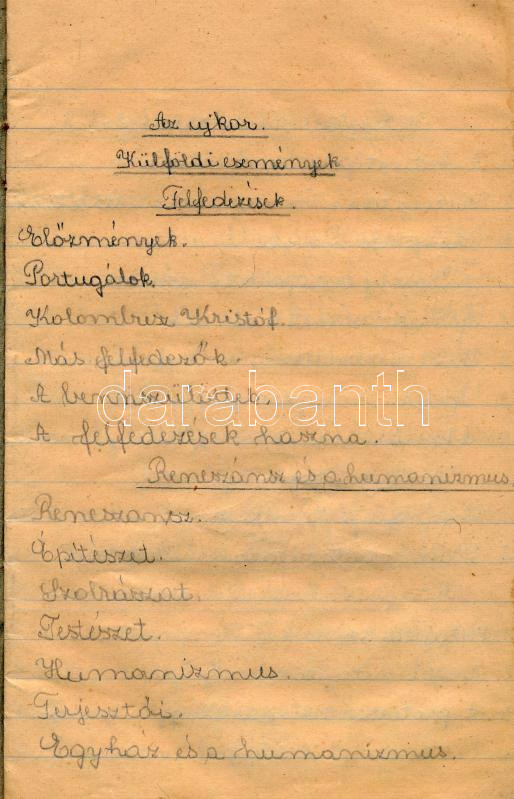 Az ujkor.
Külföldi események
Felfedezések.
Előzmények.
Portugálok.
Kolombusz Kristóf.
Más felfedezők.
A bennszülöttek.
darabanth
A felfedezések haszna.
Reneszánsz és a humanizmus.
Reneszansz.
Építészet.
Szobrászat.
Festészet.
Humanizmus.
Terjesztői.
Egyház és a humanizmus.